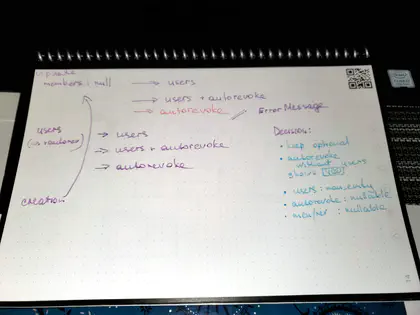 Update
members: null → users
→ users + autorevoke
→ autorevoke
Error Message
users
→ users
→ users + autorevoke
→ autorevoke
creation
Decision:
• keep optional
• autorevoke
without users
shows
• users: non-empty
• autorevoke: nullable
: nullable